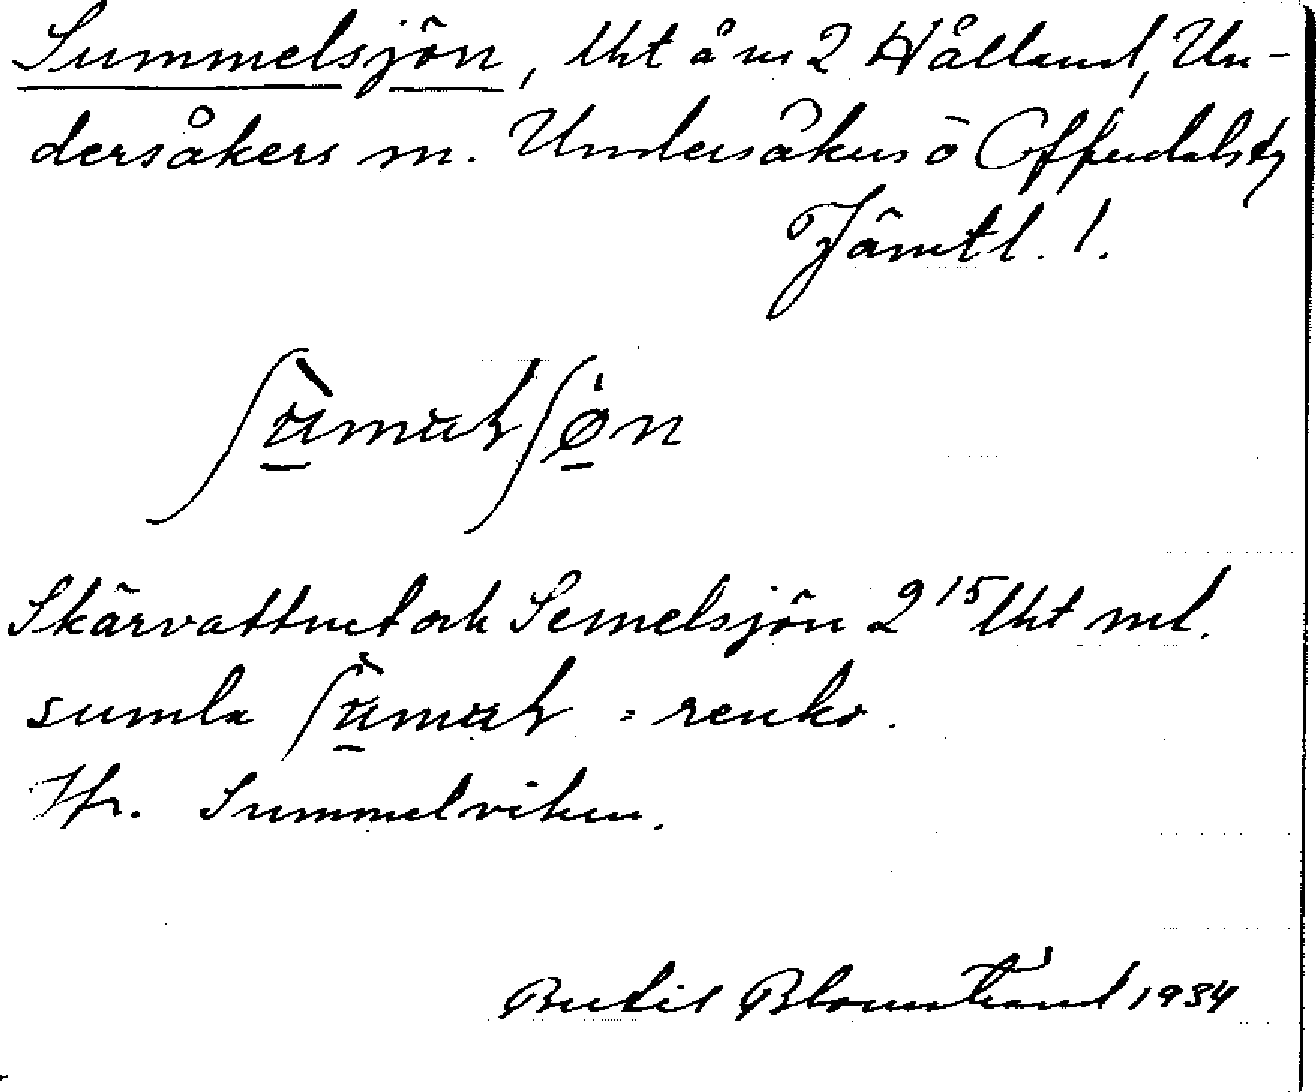 Summelsjön, lht å nr 2 Hålland, Un-
dersåkers sn. Undersåkers o Offerdals tg
Jämtl. l.
Skärvattnet och Semelsjön 2 15 lht
sumla = renko.
Jfr. Summelviken.
Bertil Blomstrand 1934